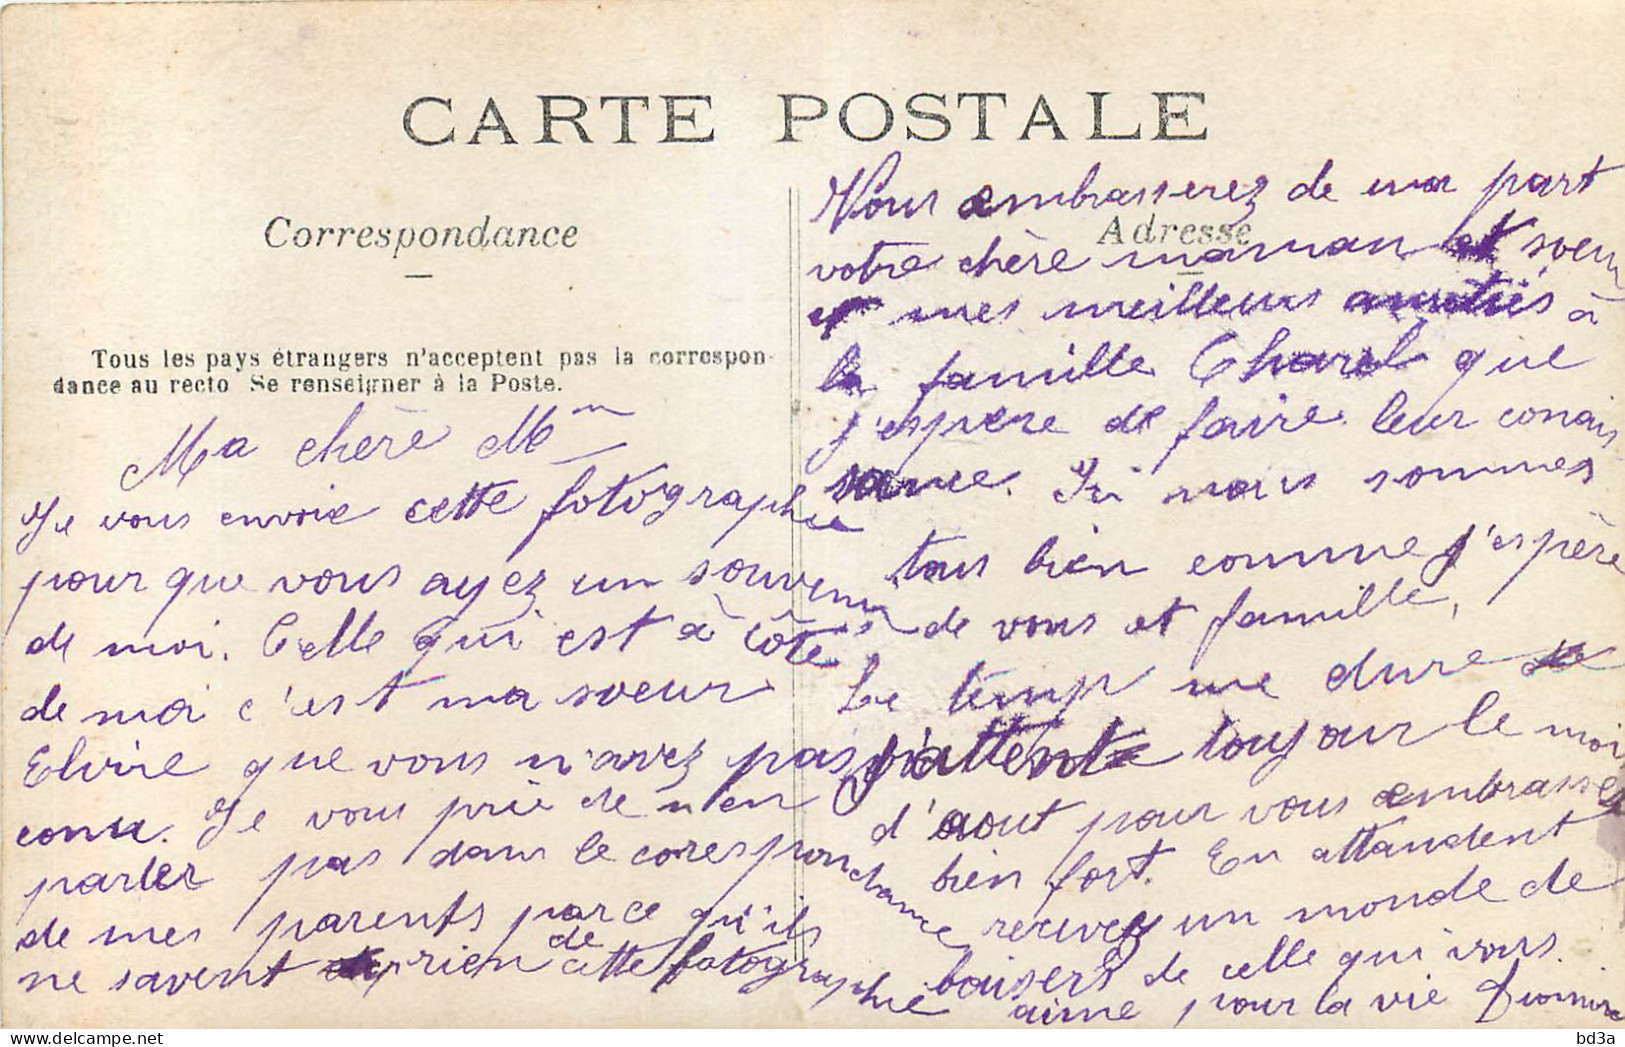 CARTE POSTALE
Correspondance
Tous les pays étrangers n'acceptent pas la correspon-
dance au recto Se renseigner à la Poste.
Ma chère Mm
Je vous envoie cette fotographie
pour que vous ayez un souvenir
de moi. Celle qui est à côté
de moi c'est ma soeur
Elvire que vous n'avez pas
conu. Je vous prie de n'en
parler pas dans le corespondance
de mes parents parce qu'ils
ne savent rien de cette fotographie
Adresse
Vous embrasserez de ma part
votre chère maman et soeur
et mes meilleurs amitiés à
la famille Charel que
j'espère de faire leur conais
sance. Ici nous sommes
tous bien comme j'espère
de vous et famille,
Le temp me dure de
j'attent toujour le moi
d'aout pour vous embrasser
bien fort. En attandent
recivez un monde de
baisers de celle qui vous
aime pour la vie
bd3a